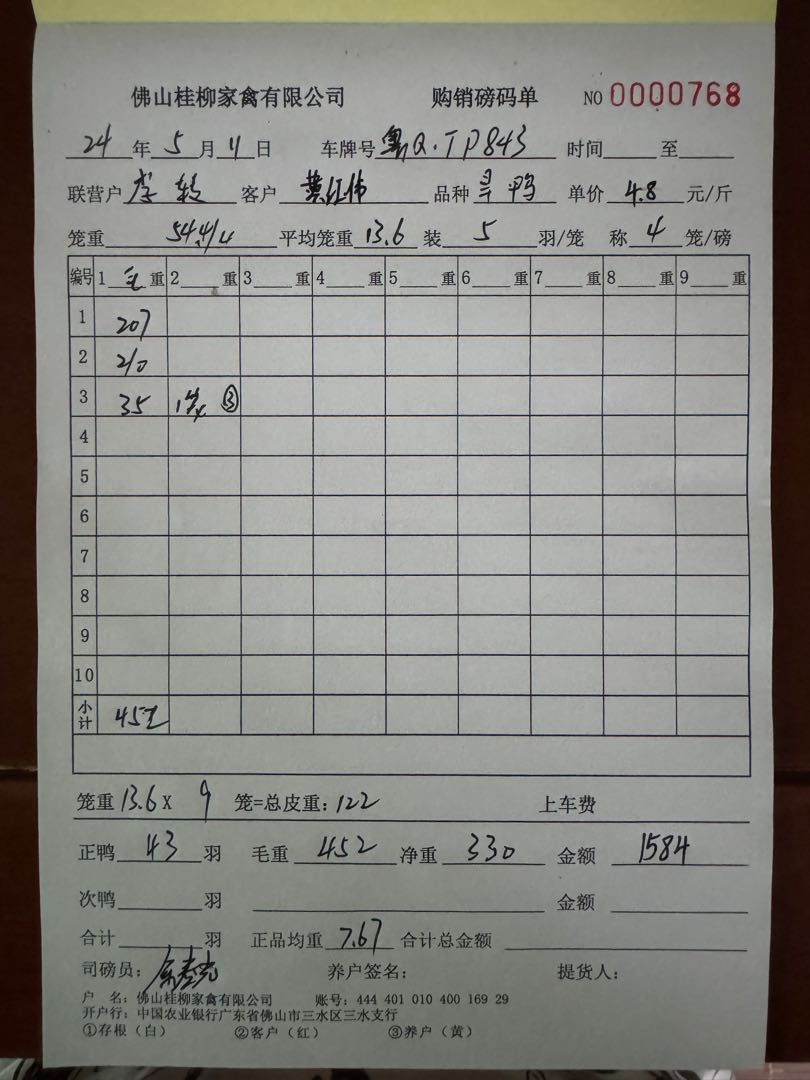 佛山桂柳家禽有限公司 购销磅码单 NO 0000768
24 年 5 月 11 日 车牌号 粤Q·TP843 时间 至
联营户 李 客户 黄红伟 品种 旱鸭 单价 4.8 元/斤
笼重 54.4/4 平均笼重 13.6 装 5 羽/笼 称 4 笼/磅
编号 1 毛 重 2 重 3 重 4 重 5 重 6 重 7 重 8 重 9 重
1 207
2 210
3 35 1 ③
4
5
6
7
8
9
10
小计 452
笼重 13.6 X 9 笼=总皮重: 122 上车费
正鸭 43 羽 毛重 452 净重 330 金额 1584
次鸭 羽 金额
合计 羽 正品均重 7.67 合计总金额
司磅员: 养户签名: 提货人:
户 名: 佛山桂柳家禽有限公司 账号: 444 401 010 400 169 29
开户行: 中国农业银行广东省佛山市三水区三水支行
①存根（白） ②客户（红） ③养户（黄）